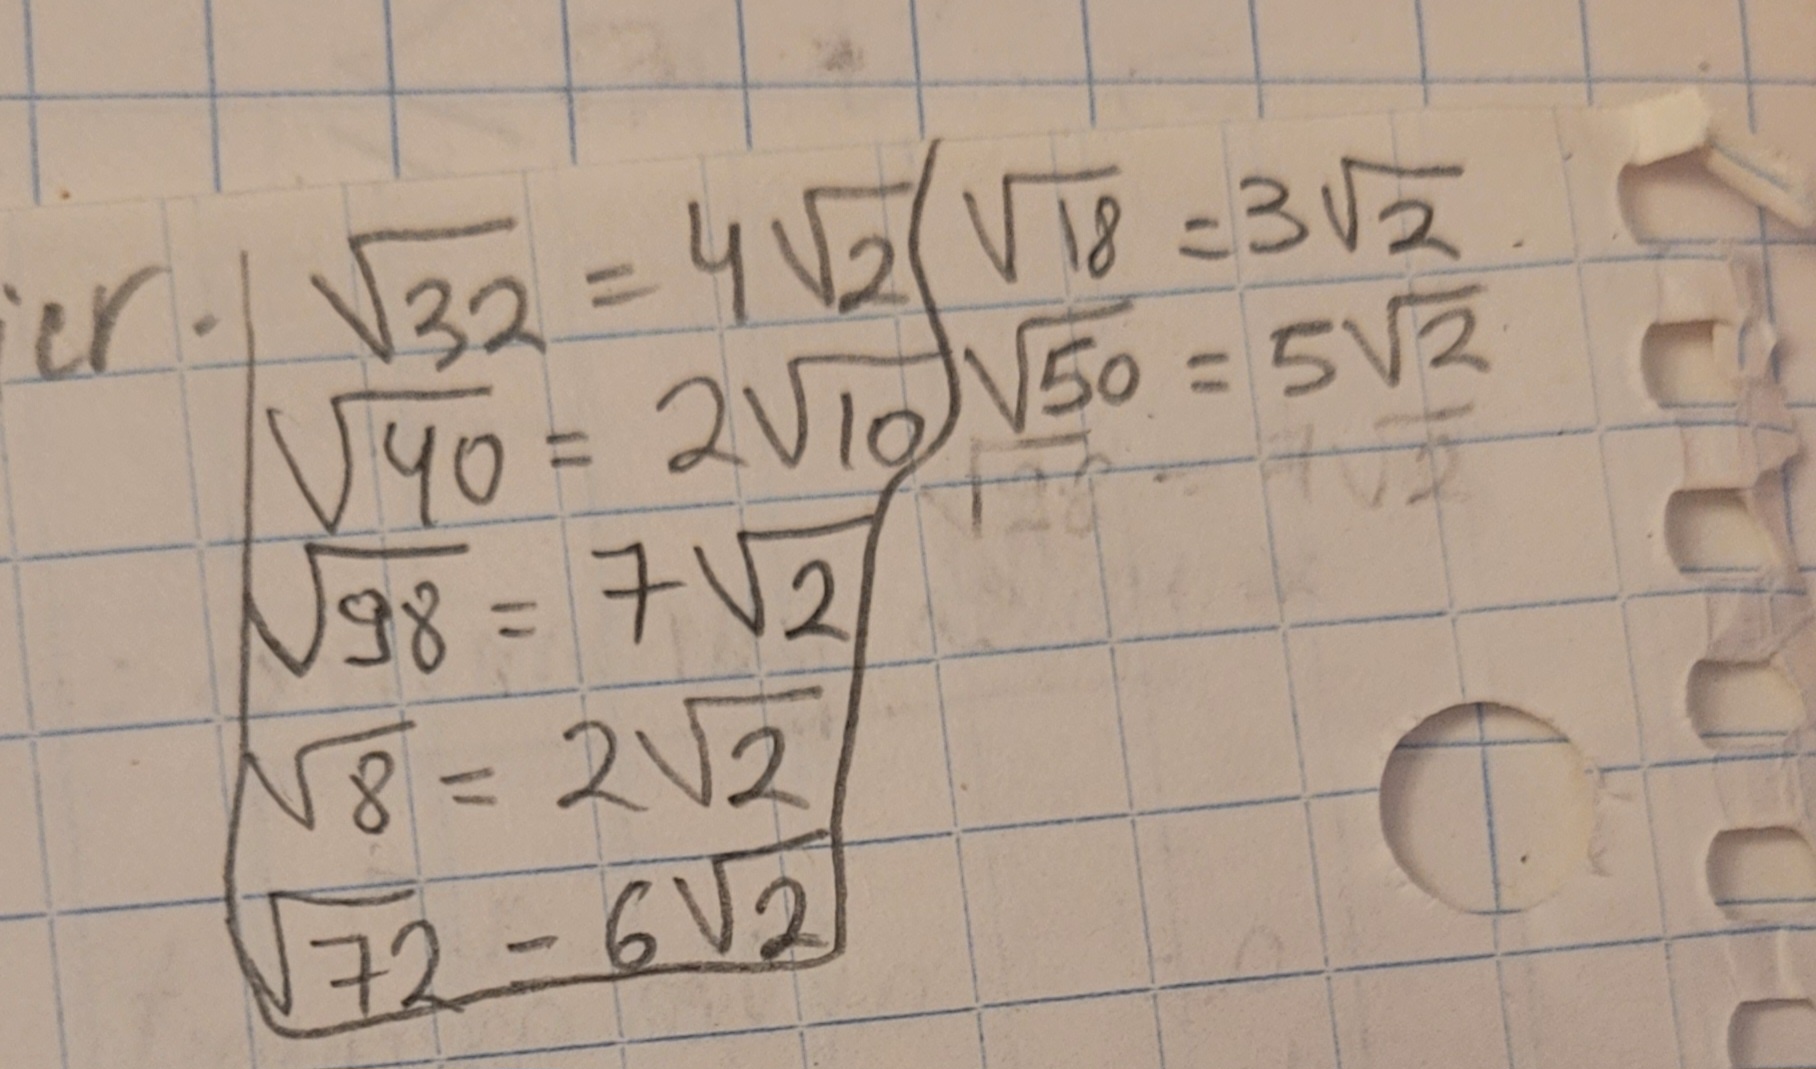 √32 = 4√2
√40 = 2√10
√98 = 7√2
√8 = 2√2
√72 - 6√2
√18 = 3√2
√50 = 5√2